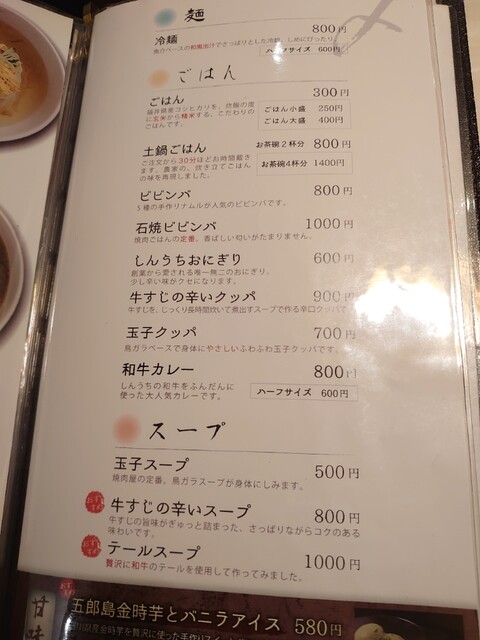 麺
冷麺 800円
鶏のベースの和風出汁でさっぱりとした冷麺、しめにぴったり。
ハーフサイズ 600円
ごはん
ごはん 300円
福井県産コシヒカリを、炊飯の度
に玄米から精米する、こだわりの
ごはんです。
ごはん小盛 250円
ごはん大盛 400円
土鍋ごはん お茶碗2杯分 800円
ご注文から30分ほどお時間戴き
ます。農家の、炊き立てごはん
の味を再現しました。
お茶碗4杯分 1400円
ビビンバ 800円
5種の手作りナムルが人気のビビンバです。
石焼ビビンバ 1000円
焼肉ごはんの定番、香ばしい匂いがたまりません。
しんうちおにぎり 600円
創業から愛される唯一無二のおにぎり。
少し辛い味がクセになります。
牛すじの辛いクッパ 900円
牛すじを、じっくり長時間炊いて煮出すスープで作る辛口クッパで
玉子クッパ 700円
鳥ガラベースで身体にやさしいふわふわ玉子クッパです。
和牛カレー 800円
しんうちの和牛をふんだんに
使った大人気カレーです。
ハーフサイズ 600円
スープ
玉子スープ 500円
焼肉屋の定番、鳥ガラスープが身体にしみます。
おすすめ
牛すじの辛いスープ 800円
牛すじの旨味がぎゅっと詰まった、さっぱりながらコクのある
味わいです。
おすすめ
テールスープ 1000円
贅沢に和牛のテールを使用して作ってみました。
甘味
おすすめ
五郎島金時芋とバニラアイス 580円
川県産金時芋を贅沢に使った手作りスイ